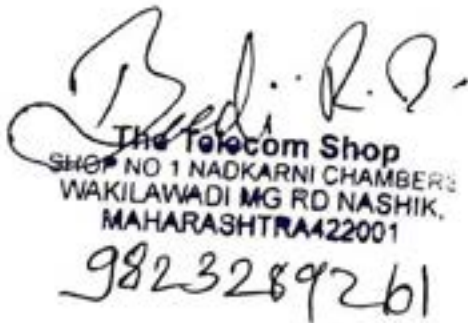 Bedi R. B.
The Telecom Shop
SHOP NO 1 NADKARNI CHAMBERS
WAKILAWADI MG RD NASHIK,
MAHARASHTRA422001
9823289261